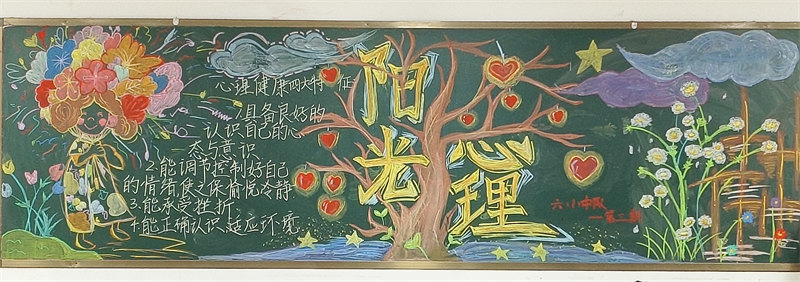 心理健康四大特征
1.具备良好的
认识自己的心
态与意识
2.能调节控制好自己
的情绪使之保愉悦冷静
3.能承受挫折
4.能正确认识适应环境
阳光
心理
六.小中队
一第二期